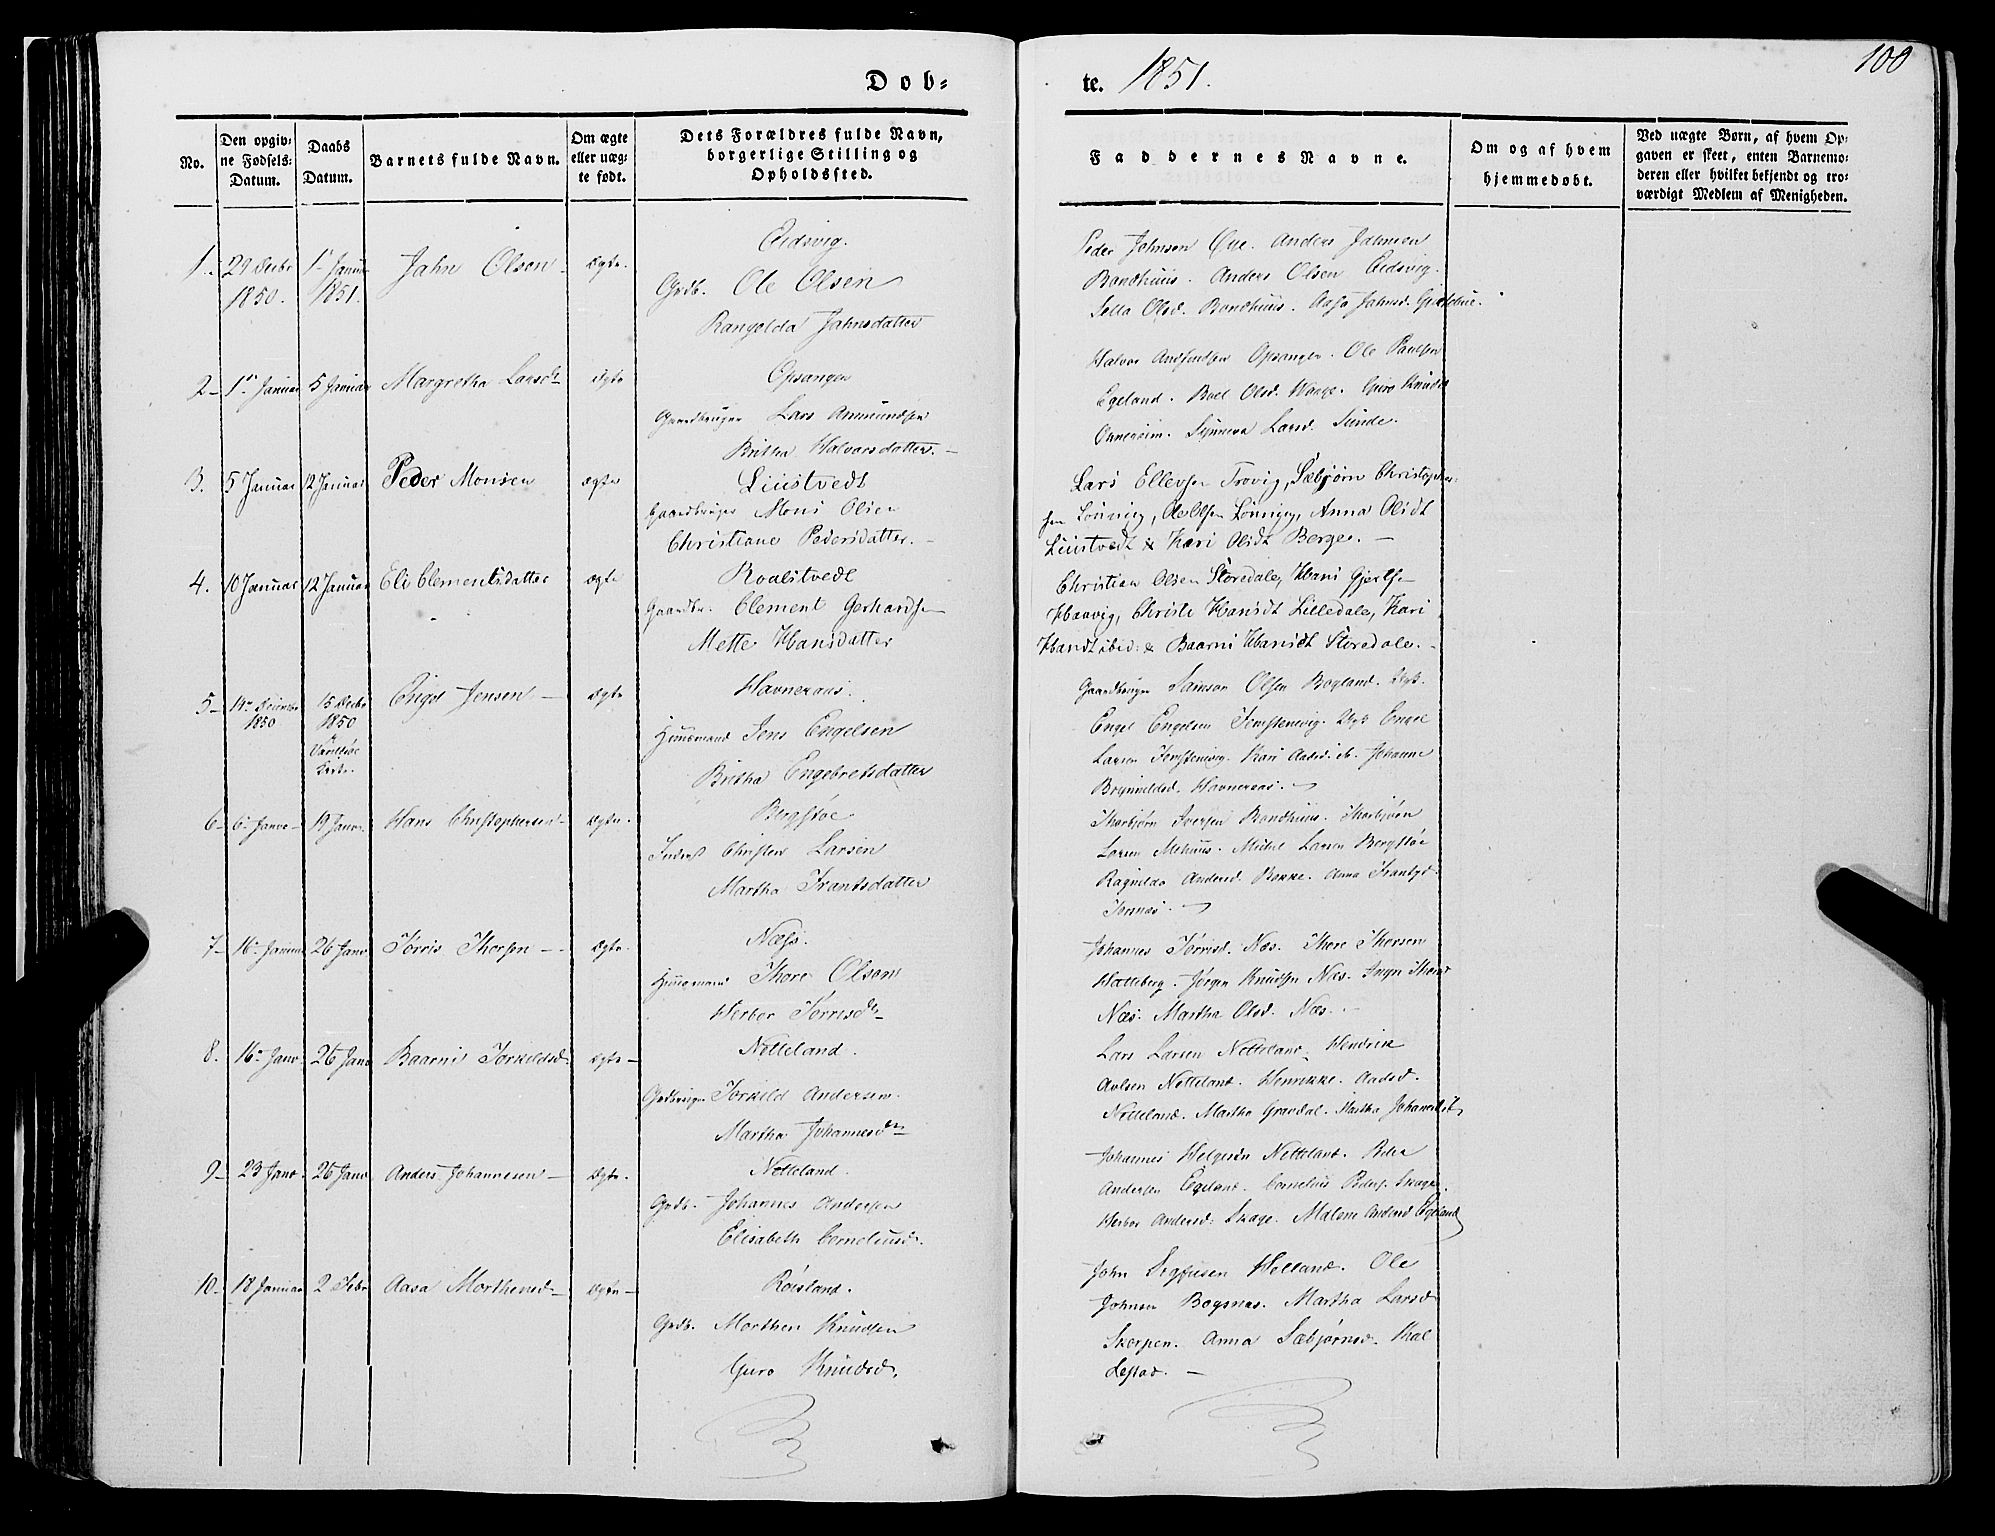 Døb-
te. 1851.
100
No.
Den opgiv-
ne Fødsels-
Datum.
Daabs
Datum.
Barnets fulde Navn.
Om ægte
eller uæg-
te født.
Dets Forældres fulde Navn,
borgerlige Stilling og
Opholdssted.
Faddernes Navne.
Om og af hvem
hjemmedøbt.
Ved uægte Børn, af hvem Op-
gaven er skeet, enten Barnemo-
deren eller hvilket bekjendt og tro-
værdigt Medlem af Menigheden.
1. 29 Decbr 1850. 1 Januar 1851. Jahn Olsen ægte.
Eidsvig.
Grdb. Ole Olsen
Rangelda Jahnsdatter
Peder Johnsen Øye. Anders Jahnsen
Bondhuus. Anders Olsen Eidsvig.
Sella Olsd. Bondhuus. Aasa Jahnsd.
2 1 Januar 5 Januar Margretha Larsdr ægte
Opsanger
Gaardbruger Lars Ammundsen
Britha Halvorsdatter.
Halvor Opsanger. Ole Paulsen
Egeland. Olsd. Waage. Guro Knudsd
Synneva Larsd. Sunde.
3. 5 Januar 12 Januar Peder Monsen ægte
Liustvedt
Gaardbruger Mons Olsen
Christiane Pedersdatter.
Lars Ellevsen Trovig, Sæbjørn Christophersen
Lønning, Ole Olsen Lønning, Anna Olsdt
Liustvedt & Kari Olsdt Berge.
4. 10 Januar 12 Januar Eli Clementsdatter ægte
Roalstvedt
Gaardbr. Clement Gerhardsen
Mette Hansdatter
Christian Olsen Storedale, Hans Gjertsen
Haavig, Christi Hansdt Lilledale, Kari
Hansdt ibid: & Baarni Hansdt Storedale.
5 14 Decembr 1850 15 Decbr 1850 Engel Jensen ægte
Havneraas.
Huusmand Jens Engelsen
Britha Engebretsdatter
Gaardbruger Samson Olsen Bogland.
Engel Engelsen Engel
Larsen Kari Johanne
Brynnildsd. Havneraas.
6 6 Janr 19 Janr. Hans Christophersen ægte.
Bergstøe
Inderst Christen Larsen
Martha Frantsdatter
Thorbjørn Iversen Bondhuus. Thorbjørn
Larsen Mehuus. Michel Larsen Bergstøe
Ragnilda Andersd. Bakke. Anna Frantsd.
7 16 Januar 26 Janr Tørris Thorsen ægte.
Næss.
Huusmand Thore Olsen
Herbor Tørrisdr
Johannes Tørrisd. Næs. Thore Thorsen
Hatteberg. Jørgen Knudsen Næs.
Næs. Martha Olsd. Næs.
8. 16 Janr. 26 Janr Baarni Torkildsd. ægte
Netteland.
Grdbruger Torkild Andersen.
Martha Johannesdr
Lars Larsen Netteland. Hendrik
Netteland. Henrikke. Aadsd.
Netteland. Martha Gravdal. Martha
9 23 Janr. 26 Janr Anders Johannesen ægte.
Netteland.
Grdb. Johannes Andersen
Elisabeth Corneliusd.
Johannes Helgesen Netteland. Peder
Andersen Egeland. Cornelius Peders. Skage.
Herbor Andersd: Skage. Malene Andersd Egeland
10. 18 Januar 2 Febr Aasa Morthensd ægte
Røisland.
Grdb. Morthen Knudsen
Guro Knudsd.
John Sigfusen Helland. Ole
Johnsen Bogsnæs. Martha Larsd
Skorpen. Anna Sæbjørnsd. Hal
destad.